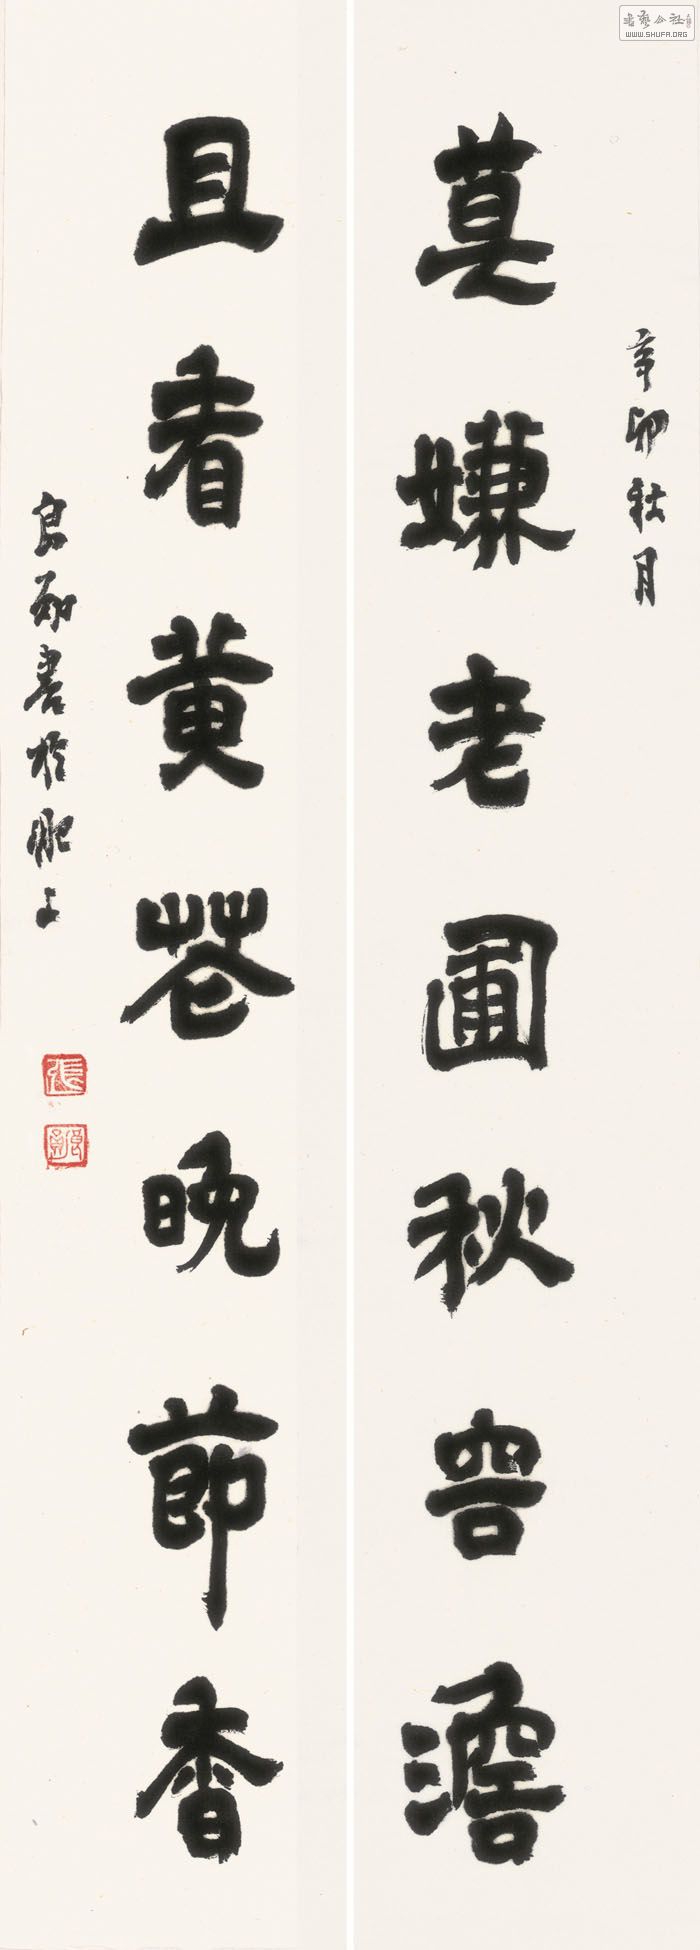 莫嫌老圃秋容澹
辛卯秋月
且看黄花晚節香
良勋書於肥上
張
書藝公社
WWW.SHUFA.ORG